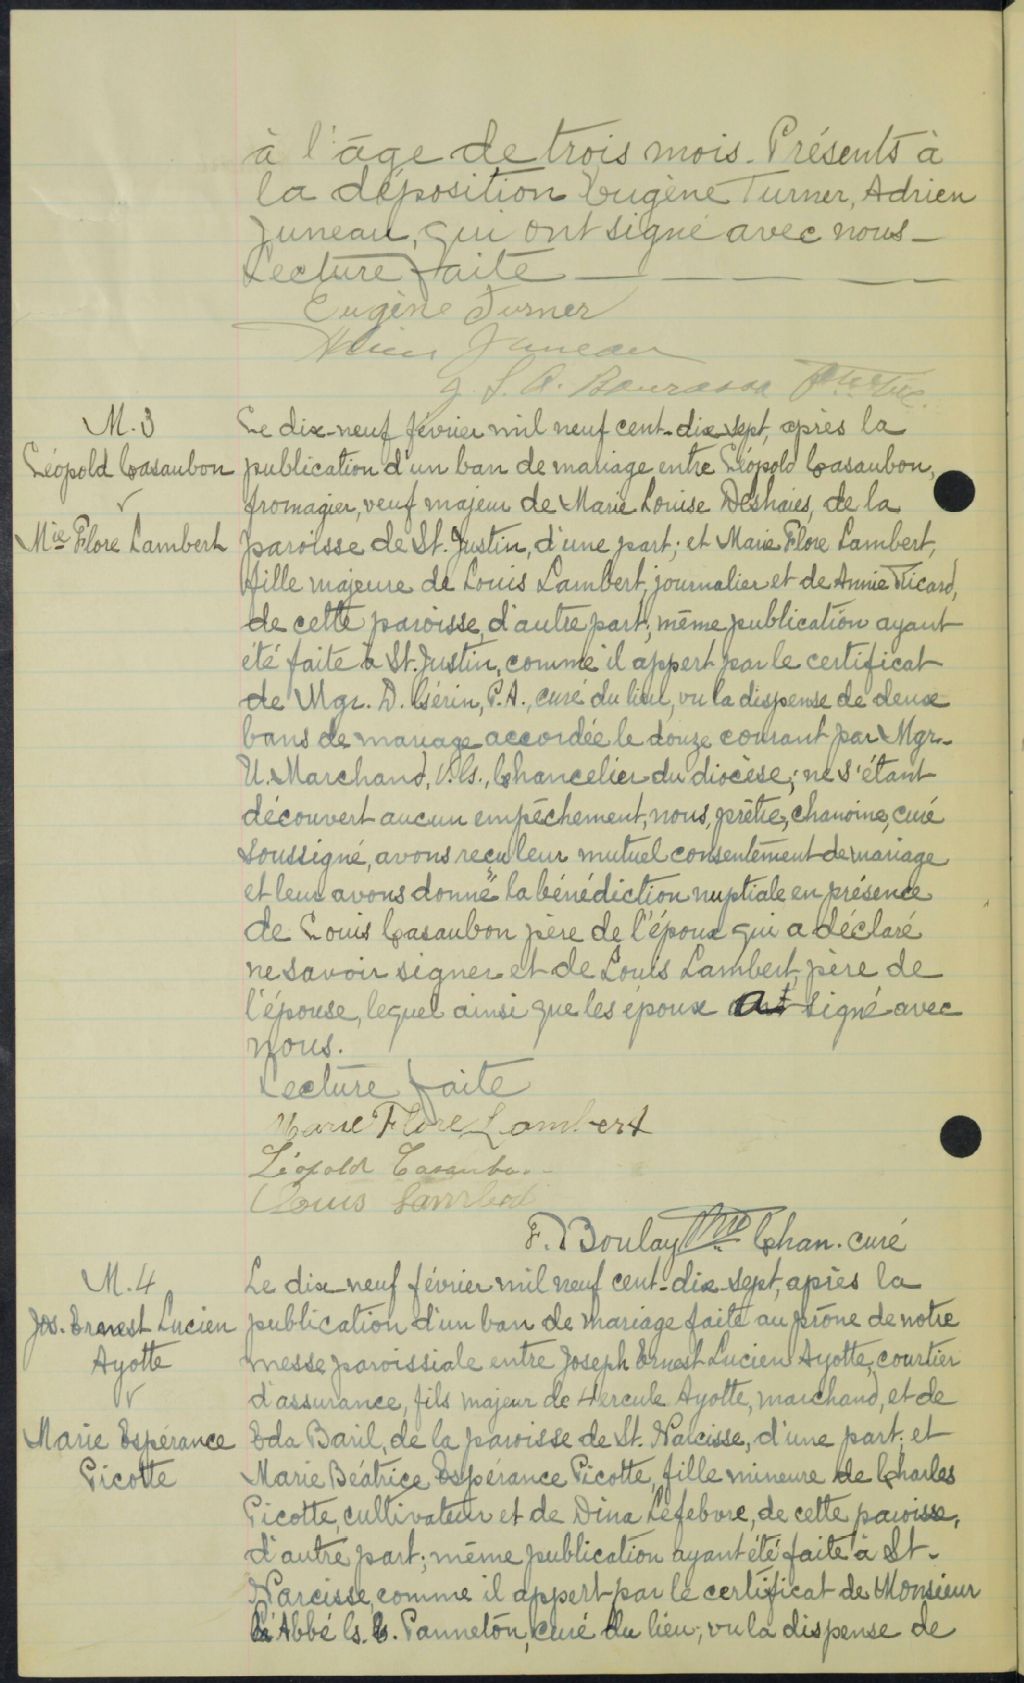 à l'âge de trois mois. Présents à
la déposition Eugène Turner, Adrien
Juneau, qui ont signé avec nous_
Lecture faite
Eugène Turner
Adrien Juneau
J. L. A. Bourassa Ptre Vic.
M. 3
Léopold Casaubon
Mie Flore Lambert
Le dix-neuf février mil neuf cent-dix-sept, après la
publication d'un ban de mariage entre Léopold Casaubon,
fromagier, veuf majeur de Marie Louise Deshaies, de la
paroisse de St. Justin, d'une part; et Marie Flore Lambert,
fille majeure de Louis Lambert, journalier et de Annie Ricard,
de cette paroisse, d'autre part; même publication ayant
été faite à St. Justin, comme il appert par le certificat
de Mgr. D. Gérin, P.A., curé du lieu, vu la dispense de deux
bans de mariage accordée le douze courant par Mgr.
U. Marchand, V.G., Chancelier du diocèse; ne s'étant
découvert aucun empêchement, nous, prêtre, chanoine, curé
soussigné, avons reçu leur mutuel consentement de mariage
et leur avons donné la bénédiction nuptiale en présence
de Louis Casaubon père de l'époux qui a déclaré
ne savoir signer et de Louis Lambert, père de
l'épouse, lequel ainsi que les époux ont signé avec
nous.
Lecture faite
Marie Flore Lambert
Léopold Casaubon
Louis Lambert
F. Boulay Ptre Chan. curé
M. 4
Jos. Ernest Lucien
Ayotte
Marie Espérance
Picotte
Le dix-neuf février mil neuf cent-dix-sept, après la
publication d'un ban de mariage faite au prône de notre
messe paroissiale entre Joseph Ernest Lucien Ayotte, courtier
d'assurance, fils majeur de Hercule Ayotte, marchand, et de
Eda Baril, de la paroisse de St. Narcisse, d'une part; et
Marie Béatrice Espérance Picotte, fille mineure de Charles
Picotte, cultivateur et de Dina Lefebvre, de cette paroisse,
d'autre part; même publication ayant été faite à St.
Narcisse, comme il appert par le certificat de Monsieur
l'Abbé G. E. Panneton, curé du lieu; vu la dispense de